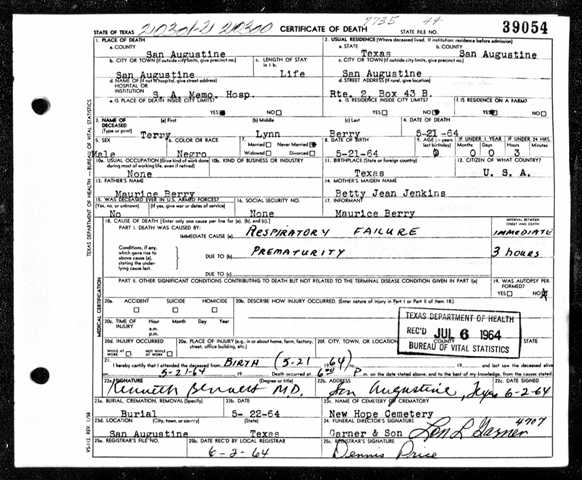 STATE OF TEXAS 210301-21 210300 CERTIFICATE OF DEATH 7735 44 STATE FILE NO. 39054
1. PLACE OF DEATH 2. USUAL RESIDENCE (Where deceased lived. If institution: residence before admission)
a. COUNTY San Augustine a. STATE Texas b. COUNTY San Augustine
b. CITY OR TOWN (If outside city limits, give precinct no.) c. LENGTH OF STAY in 1 b. c. CITY OR TOWN (If outside city limits, give precinct no.)
San Augustine Life San Augustine
d. NAME OF (If not in hospital, give street address) HOSPITAL OR INSTITUTION d. STREET ADDRESS (If rural, give location)
S. A. Memo. Hosp. Rte. 2, Box 43 B.
e. IS PLACE OF DEATH INSIDE CITY LIMITS? e. IS RESIDENCE INSIDE CITY LIMITS? f. IS RESIDENCE ON A FARM?
YES NO YES NO YES NO
3. NAME OF DECEASED (Type or print) (a) First (b) Middle (c) Last 4. DATE OF DEATH
Terry Lynn Berry 5-21-64
5. SEX 6. COLOR OR RACE 7. Married Never Married Widowed Divorced 8. DATE OF BIRTH 9. AGE IF UNDER 1 YEAR IF UNDER 24 HRS.
Male Negro 5-21-64 0 0 0 3
10a. USUAL OCCUPATION (Give kind of work done during most of working life, even if retired) 10b. KIND OF BUSINESS OR INDUSTRY 11. BIRTHPLACE (State or foreign country) 12. CITIZEN OF WHAT COUNTRY?
None Texas U. S. A.
13. FATHER'S NAME 14. MOTHER'S MAIDEN NAME
Maurice Berry Betty Jean Jenkins
15. WAS DECEASED EVER IN U.S. ARMED FORCES? 16. SOCIAL SECURITY NO. 17. INFORMANT
(Yes, no, or unknown) (If yes, give war or dates of service)
No None Maurice Berry
18. CAUSE OF DEATH (Enter only one cause per line for (a), (b), and (c).) INTERVAL BETWEEN ONSET AND DEATH
PART I. DEATH WAS CAUSED BY:
IMMEDIATE CAUSE (a) RESPIRATORY FAILURE IMMEDIATE
Conditions, if any, which gave rise to above cause (a), stating the underlying cause last.
DUE TO (b) PREMATURITY 3 hours
DUE TO (c)
PART II. OTHER SIGNIFICANT CONDITIONS CONTRIBUTING TO DEATH BUT NOT RELATED TO THE TERMINAL DISEASE CONDITION GIVEN IN PART I(a) 19. WAS AUTOPSY PERFORMED?
YES NO
20a. ACCIDENT SUICIDE HOMICIDE 20b. DESCRIBE HOW INJURY OCCURRED. (Enter nature of injury in Part I or Part II of item 18.)
20c. TIME OF INJURY Hour a.m. p.m. Month Day Year
TEXAS DEPARTMENT OF HEALTH
REC'D JUL 6 1964
BUREAU OF VITAL STATISTICS
20d. INJURY OCCURRED WHILE AT WORK NOT WHILE AT WORK 20e. PLACE OF INJURY (e.g. in or about home, farm, factory, street, office building, etc.) 20f. CITY, TOWN, OR LOCATION
21. I hereby certify that I attended the deceased from BIRTH (5-21 64) last saw the deceased alive
5-21-64 Death occurred at 6 P m. on the date stated above, and to the best of my knowledge, from the causes stated.
22a. SIGNATURE (Degree or title) 22b. ADDRESS 22c. DATE SIGNED
Kenneth Bennett M.D. San Augustine, Texas 6-2-64
23a. BURIAL, CREMATION, REMOVAL (Specify) 23b. DATE 23c. NAME OF CEMETERY OR CREMATORY
Burial 5- 22-64 New Hope Cemetery
23d. LOCATION (City, town, or county) (State) 24. FUNERAL DIRECTOR'S SIGNATURE 4707
San Augustine Texas Garner & Son Lon L Garner
25a. REGISTRAR'S FILE NO. 25b. DATE REC'D BY LOCAL REGISTRAR 25c. REGISTRAR'S SIGNATURE
6-2-64 Dennis Price
TEXAS DEPARTMENT OF HEALTH — BUREAU OF VITAL STATISTICS
MEDICAL CERTIFICATION
VS-112 REV. 1/58